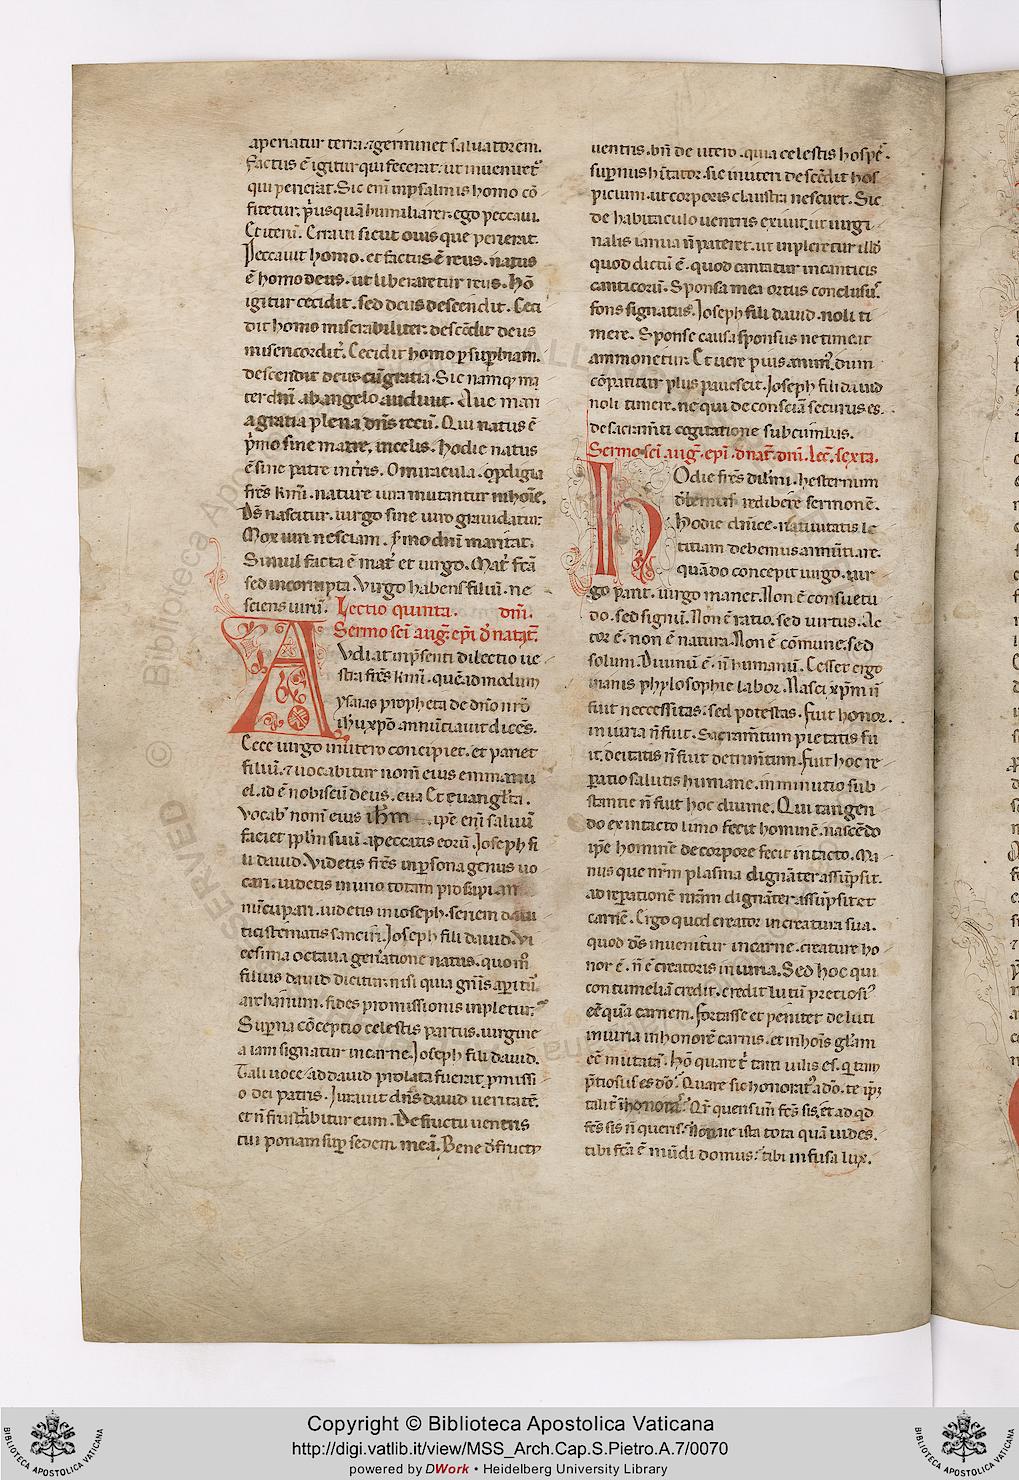 aperiatur terra. ⁊ germinet saluatorem.
Factus ē igitur qui fecerat. ut inueniret᷑
qui perierat. Sic eni᷑ in psalmis homo cō
fitetur. p̄usquā humiliarer. ego peccaui.
Et iteru᷑. Erraui sicut ouis que perierat.
Peccauit homo. et factus ē reus. natus
ē homo deus. ut liberaretur reus. Hō
igitur cecidit. sed deus descendit. Ceci
dit homo miserabiliter. descēdit deus
misericordit᷑. Cecidit homo p supbiam.
descendit deus cū gratia. Sic namq; ma
ter dn̄i ab angelo audiuit. Aue mari
a gratia plena dn̄s tecū. Qui natus ē
p̄mo sine matre, in celis. Hodie natus
ē sine patre in tr̄is. O miracula. o prdigia
fr̄es km̄i. nature iura mutantur in hoīe.
D̄s nascitur. uirgo sine uiro grauidatur.
Mox uiri nesciam. sermo dn̄i maritat.
Simul facta ē mat᷑ et uirgo. Mat᷑ fc̄a
sed incorrupta. Virgo habens filiū. ne
sciens uirū. Lectio quinta. dn̄i.
Sermo sc̄i aug᷑. ep̄i d᷑ natat᷑.
Audiat in p̄senti dilectio ue
stra fr̄es km̄i. quēadmodum
ysaias propheta de dn̄o nr̄o
ih̄u xp̄o annūtiauit dicēs.
Ecce uirgo in utero concipiet. et pariet
filiū. ⁊ uocabitur nom̄ eius emmanu
el. id ē nobiscū deus. eua Et euangl̄ta.
Vocab᷑ nom̄ eius ih̄m. ip̄e eni᷑ saluū
faciet pplm̄ suū a peccatis eorū. Joseph fi
li dauid. Videtis fr̄es in psona genus uo
cari. uidetis in uno totam prosapiam
nūcupari. uidetis in ioseph. seriem daui
tici stematis sanciri. Joseph fili dauid. Vi
cesima octaua gen᷑atione natus. quom᷑
filius dauid dicitur. nisi quia gn̄is aperitu᷑
archanum. fides promissionis inpletur.
Supna cōceptio celestis partus. uirgine
a iam signatur in carne. Joseph fili dauid.
Tali uoce ad dauid prolata fuerat p̄missi
o dei patris. Jurauit dn̄s dauid ueritatē.
et n̄ frustrabitur eum. De fructu uentris
tui ponam sup sedem meā. Bene d᷑ fructu
uentris. bn̄ de utero. quia celestis hospes.
supnus hītator. sic in uteri descēdit hos
picium. ut corporis claustra nesciret. Sic
de habitaculo uentris exiuit. ut uirgi
nalis ianua n̄ pateret. ut inpleretur illd᷑
quod dictū ē. quod cantatur in canticis
canticorū. Sponsa mea ortus conclusus.
fons signatus. Joseph fili dauid. noli ti
mere. Sponse causa sponsus ne timeat
ammonetur. Et uere pius animus dum
cōpatitur plus pauescit. Joseph fili dauid
noli timere. ne qui de consciā securus es.
de sacram̄ti cogitatione subcumbas.
Sermo sc̄i. aug᷑. ep̄i. d᷑ nat᷑. dn̄i. lec̄. sexta.
Hodie fr̄es dil̄mi. hesternum
debemus redibere sermonē.
Hodie diuīce. natiuitatis le
titiam debemus annūtiare.
quādo concepit uirgo. uir
go parit. uirgo manet. Non ē consuetu
do. sed signū. Non ē ratio. sed uirtus. Ac
tor ē. non ē natura. Non ē cōmune. sed
solum. Diuinū ē. n̄ humanū. Cesset ergo
inanis phylosophie labor. Nasci xp̄m n̄
fuit neccessitas. sed potestas. Fuit honor.
iniuria n̄ fuit. Sacram̄tum pietatis fu
it. deitatis n̄ fuit detrim̄tum. Fuit hoc re
paratio salutis humane. inminutio sub
stantie n̄ fuit hoc diuine. Qui tangen
do ex intacto limo fecit hominē. nascēdo
ip̄e hominē de corpore fecit intacto. Ma
nus que nr̄m plasma dignāter assūpsit.
ad reparationē nr̄am dignāter assūpsit et
carnē. Ergo quod creator in creatura sua.
quod d̄s inuenitur in carne. creature ho
nor ē. n̄ ē creatoris iniuria. Sed hoc qui
contumeliā credit. credit lutū pretiosi᷑
eē quā carnem. Fortasse et peniter de luti
iniuria in honorē carnis. et in hoīs glām
eē mutatā. Hō quare t᷑ tam uilis es. q tam
p̄tiosus es dō. Quare sic honorat᷑ a dō. te ip̄e
tali t᷑ inhonoras. Qr̄ queris un̄ fcs̄ sis. et ad qd
fcs̄ sis n̄ queris. Nonne ista tota quā uides.
tibi fc̄a ē mūdi domus. tibi infusa lux.
Copyright © Biblioteca Apostolica Vaticana
http://digi.vatlib.it/view/MSS_Arch.Cap.S.Pietro.A.7/0070
powered by DWork • Heidelberg University Library
BIBLIOTECA APOSTOLICA VATICANA
BIBLIOTECA APOSTOLICA VATICANA